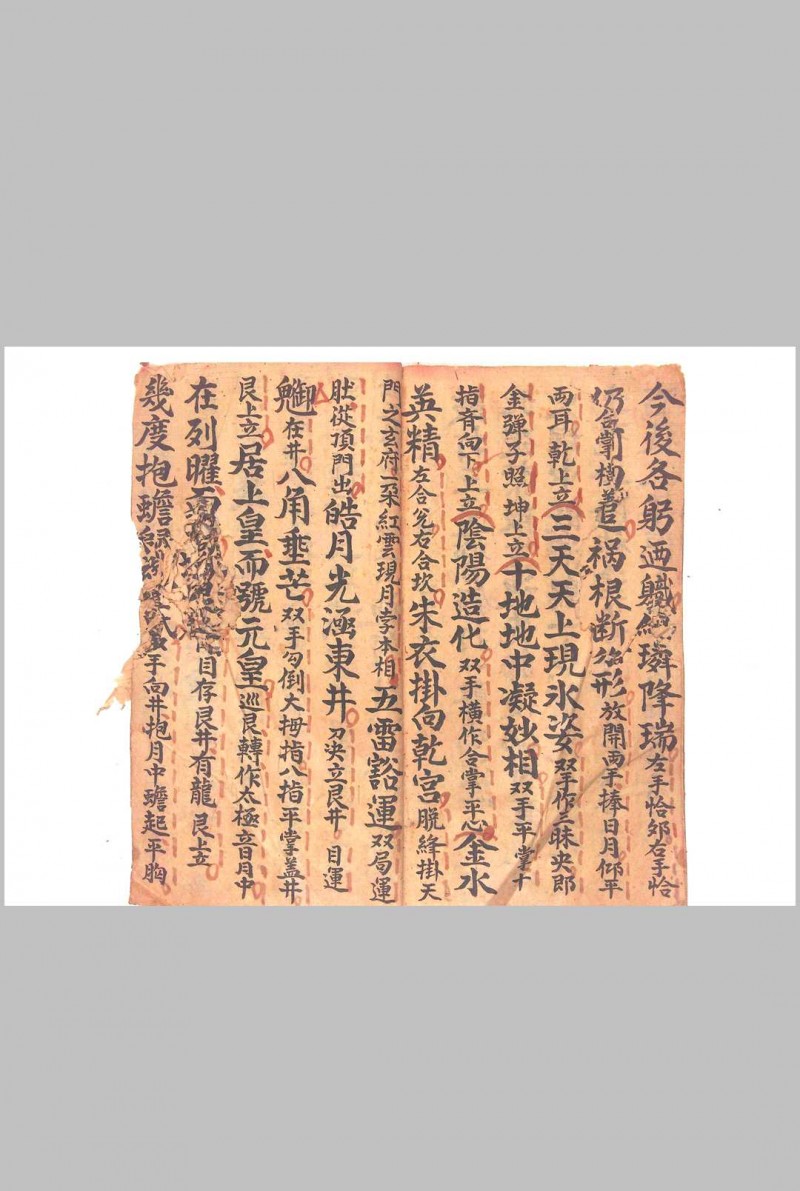 今後各躬迊職 璘降瑞左手恰卯右手恰
仍合掌 禍根断 形放開両手捧日月仰平
両耳乾上立三天天上現氷姿双手作三昧央郎
金弹子照坤上立十地地中凝妙相双手平掌十
指斉向下上立陰陽造化双手横作合掌平心金水
英精左合兌右合坎朱衣掛向乾宮脱絳掛天
門之玄府一朶紅雲現月孛本相五雷豁運双局運
肚從頂門出皓月光涵東井刀决立艮井目運
在井八角垂芒双手勾倒大拇指八指平掌盖井
艮上立居上皇而號元皇巡艮轉作太極立日月中
在列曜而 目存艮井有龍艮上立
幾度抱蟾 手向井抱月中蟾起平胸